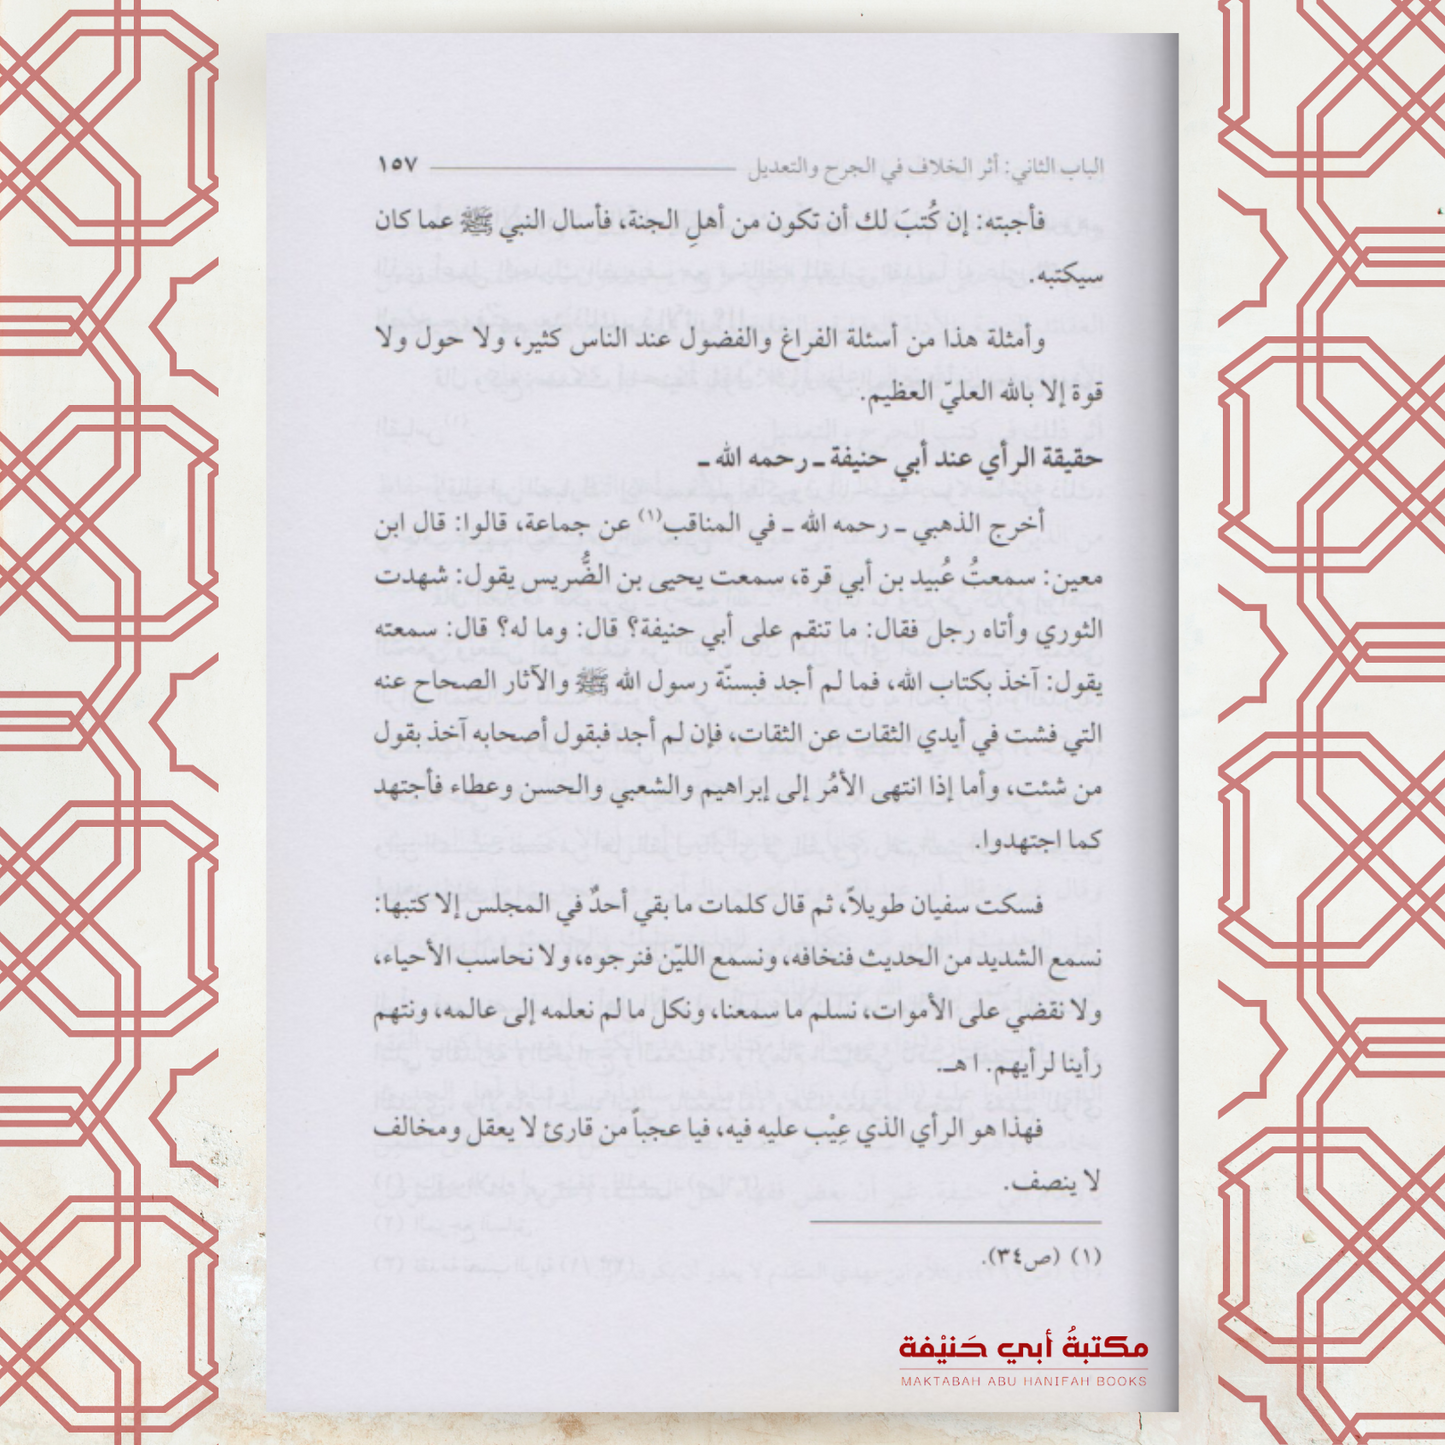 الباب الثاني: أثر الخلاف في الجرح والتعديل ١٥٧
فأجبته: إن كُتبَ لك أن تكون من أهلِ الجنة، فأسال النبي ﷺ عما كان
سيكتبه.
وأمثلة هذا من أسئلة الفراغ والفضول عند الناس كثير، ولا حول ولا
قوة إلا بالله العليّ العظيم.
حقيقة الرأي عند أبي حنيفة ـ رحمه الله ـ
أخرج الذهبي ـ رحمه الله ـ في المناقب(١) عن جماعة، قالوا: قال ابن
معين: سمعتُ عُبيد بن أبي قرة، سمعت يحيى بن الضُّريس يقول: شهدت
الثوري وأتاه رجل فقال: ما تنقم على أبي حنيفة؟ قال: وما له؟ قال: سمعته
يقول: آخذ بكتاب الله، فما لم أجد فبسنّة رسول الله ﷺ والآثار الصحاح عنه
التي فشت في أيدي الثقات عن الثقات، فإن لم أجد فبقول أصحابه آخذ بقول
من شئت، وأما إذا انتهى الأمُر إلى إبراهيم والشعبي والحسن وعطاء فأجتهد
كما اجتهدوا.
فسكت سفيان طويلاً، ثم قال كلمات ما بقي أحدٌ في المجلس إلا كتبها:
نسمع الشديد من الحديث فنخافه، ونسمع الليّن فنرجوه، ولا نحاسب الأحياء،
ولا نقضي على الأموات، نسلم ما سمعنا، ونكل ما لم نعلمه إلى عالمه، ونتهم
رأينا لرأيهم. اهـ.
فهذا هو الرأي الذي عِيْب عليه فيه، فيا عجباً من قارئ لا يعقل ومخالف
لا ينصف.
(١) (ص٣٤).
مكتبةُ أبي حَنيْفة
MAKTABAH ABU HANIFAH BOOKS